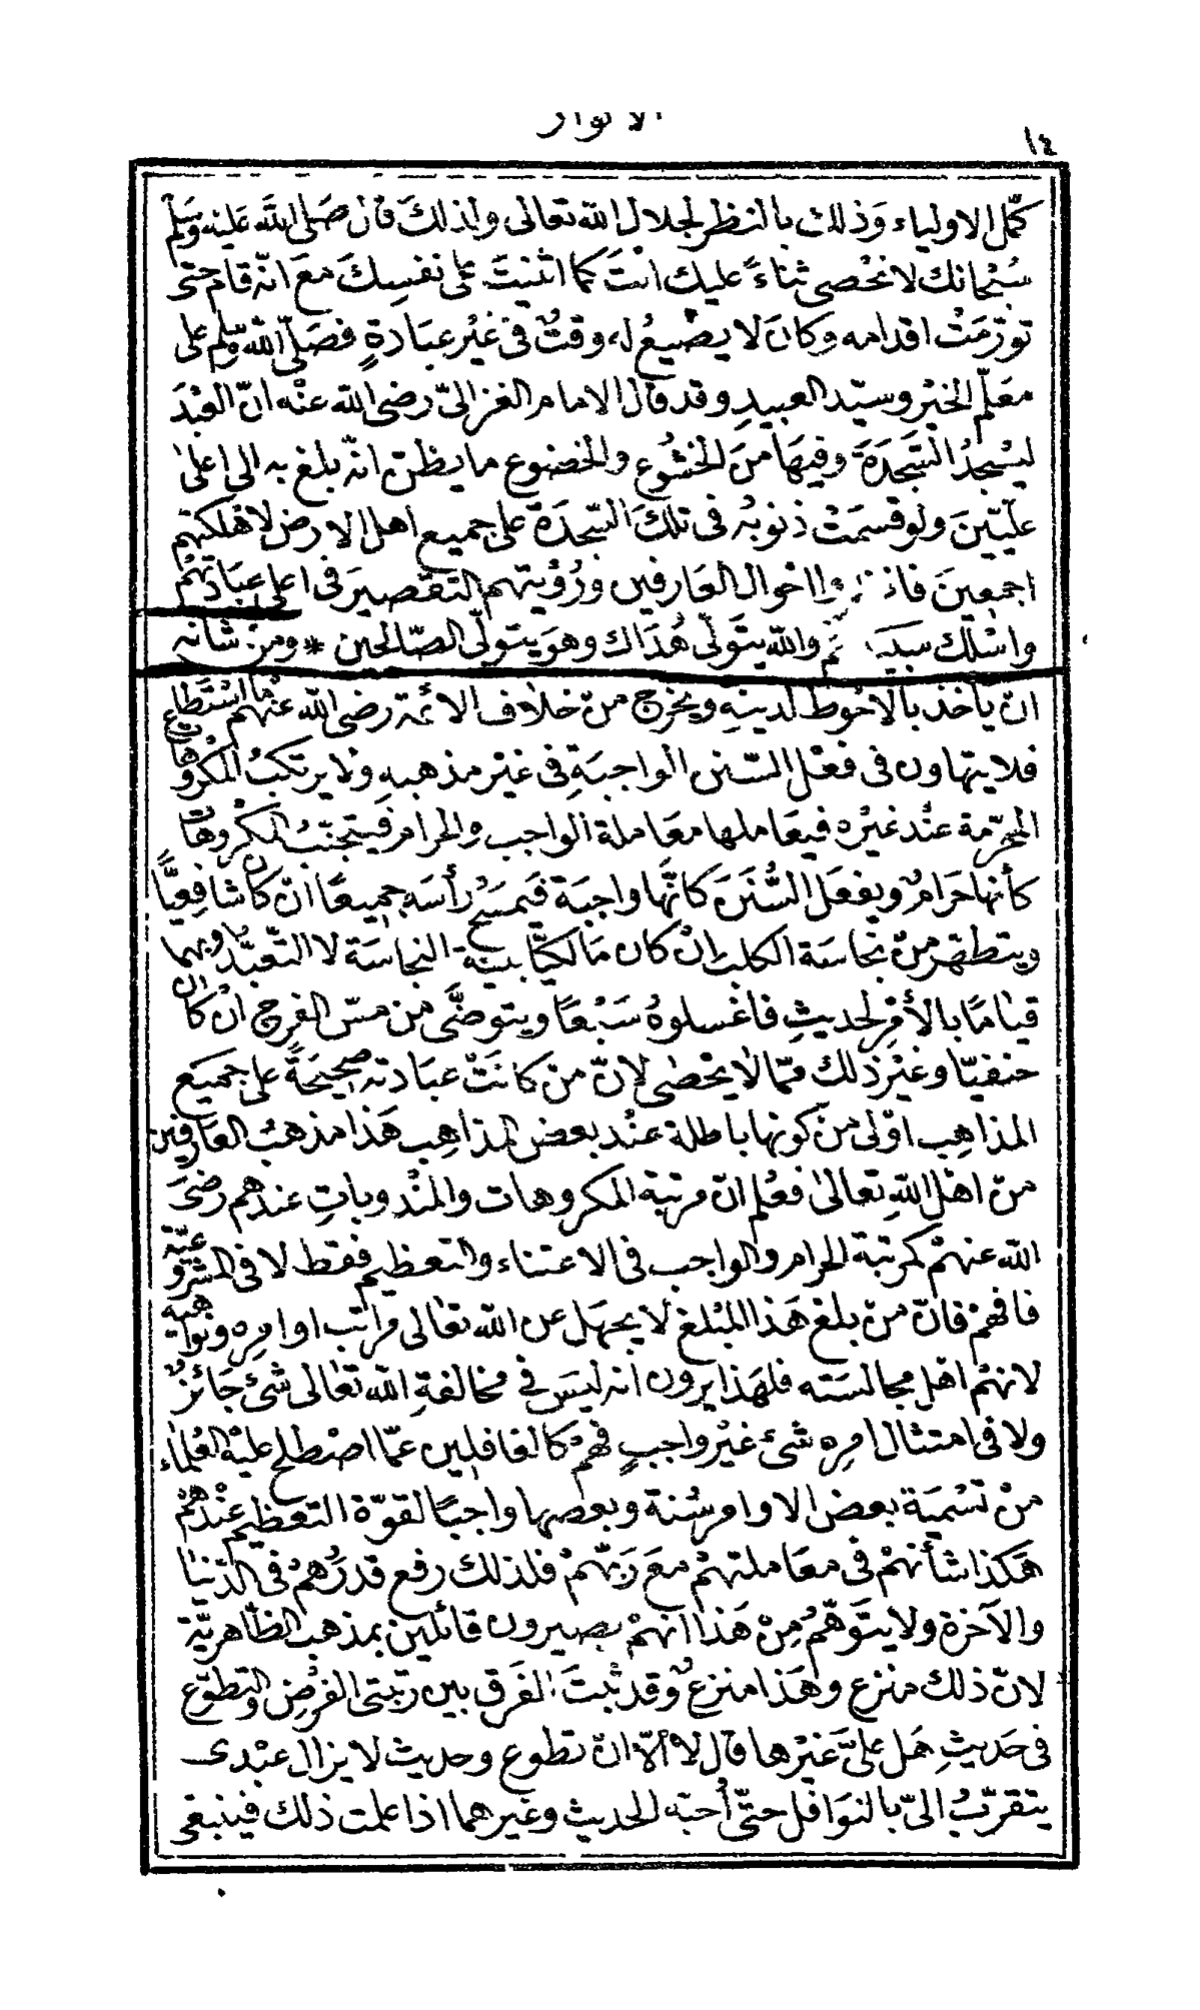 الانوار
١٤
كمّل الاولياء وَذلك بالنظر لجلال الله تعالى ولذلكَ قال صَلى الله عَليْه وَسَلم
سُبْحانك لا نحْصى ثناءً عليك انْتَ كما اثنيتَ على نفسِكَ معَ انّه قام حتى
تورّمَتْ اقدامه وكانَ لا يضيعُ له وقتٌ فى غيْر عبَادةٍ فصَلى الله وسلم على
معَلّم الخيْر وسيّد العبيدِ وقد قال الامام الغزالىّ رضى الله عنْه انّ العبْدَ
ليسْجدُ السّجدَةَ وفيهَا منَ الخشُوع والخضوع ما يظنّ انّه بلغ به الى اعلىٰ
عليّينَ ولوْ قسمَتْ ذنوبُه فى تلكَ السّجدَة على جميع اهل الارض لاهلكتهم
اجمعِينَ فانظر الى احْوال العَارفين ورُؤيتهم التقصيرَ فى اعلى عبَادتهُم
واسْلك سَبيلهم والله يتوَلّى هُدَاك وهوَ يتولّى الصّالحين * ومنْ شأنه
انّ ياخذ بالاحْوط لدينِهِ ويخرج منْ خلاف الائمة رضى الله عنْهم ما اسْتَطاع
فلا يتهاون فى فعْل السّنن الواجبَةِ فى غيْر مذهبهِ ولا يرتكبُ المكْروهَا
المحرّمة عنْد غيْره فيعَاملها معَاملة الواجب والحرام فيَتجنّبُ المكْروهَات
كأنها حَرامٌ ويفعَل السُّننَ كانّها واجبَة فيَمسَحُ رأسَه جميعًا انْ كان شافِعيًّا
ويتطهّر منْ نجاسَة الكلب انْ كان مَالكيًّا بنيّة النجاسَة لا التّعبّد وبهما
قيَامًا بالأمْر لحديثِ فاغسلوهُ سَبْعًا ويتوضَّى من مسّ الفرج انْ كان
حنفيّا وغيْر ذلك ممّا لا يحْصٰى لانّ منْ كانَتْ عبَادته صحيحَةً على جميَع
المذاهِب اوْلى منْ كونها باطلة عنْد بعض المذاهِب هَذا مذهبُ العَارفين
منْ اهْل الله تعالىٰ فعُلم انّ مرتبَة المكروهات والمنْدوباتِ عندهم رضىَ
الله عنهمْ كمرتبَة الحرام والواجب فى الاعتناء والتعظيم فقط لا فى المشروعيّة
فافهمْ فانّ منْ بلغ هَذا المبْلغ لا يجهَل عن الله تعٰالى مراتب اوامره ونواهيه
لانهمْ اهْل مجالسَته فلهَذا يرون انه ليسَ فى مخالفةِ الله تعٰالى شئ جَائزٌ
ولا فى امتثال امرِه شئ غيْر واجبٍ فهمْ كالغافلين عمّا اصْطلح عليْه العُلماء
منْ تسْميَة بعض الاوامر سُنة وبعضها واجبًا لقوّة التعظيم عنْدهمْ
هَكذا شأنهمْ فى معَاملتهمْ معَ رَبّهمْ فلذلك رفع قدرُهمْ فى الدّنيَا
والآخرة ولا يتَوَهّمُ مِنْ هَذا انّهمْ يصيرون قائلين بمذهب الظاهريّة
لانّ ذلك منزع وهَذا منزعٌ وقد ثبتَ الفَرق بين رتبتى الفرْض والتطوّع
فى حَديثِ هَل علىَّ غيْرها قال لا الّا انْ تطوع وحديث لا يزال عبْدى
يتقرّبُ الىّ بالنوَافل حتّى أُحبّه الحديث وغيرهما اذا علمت ذلك فينبغى